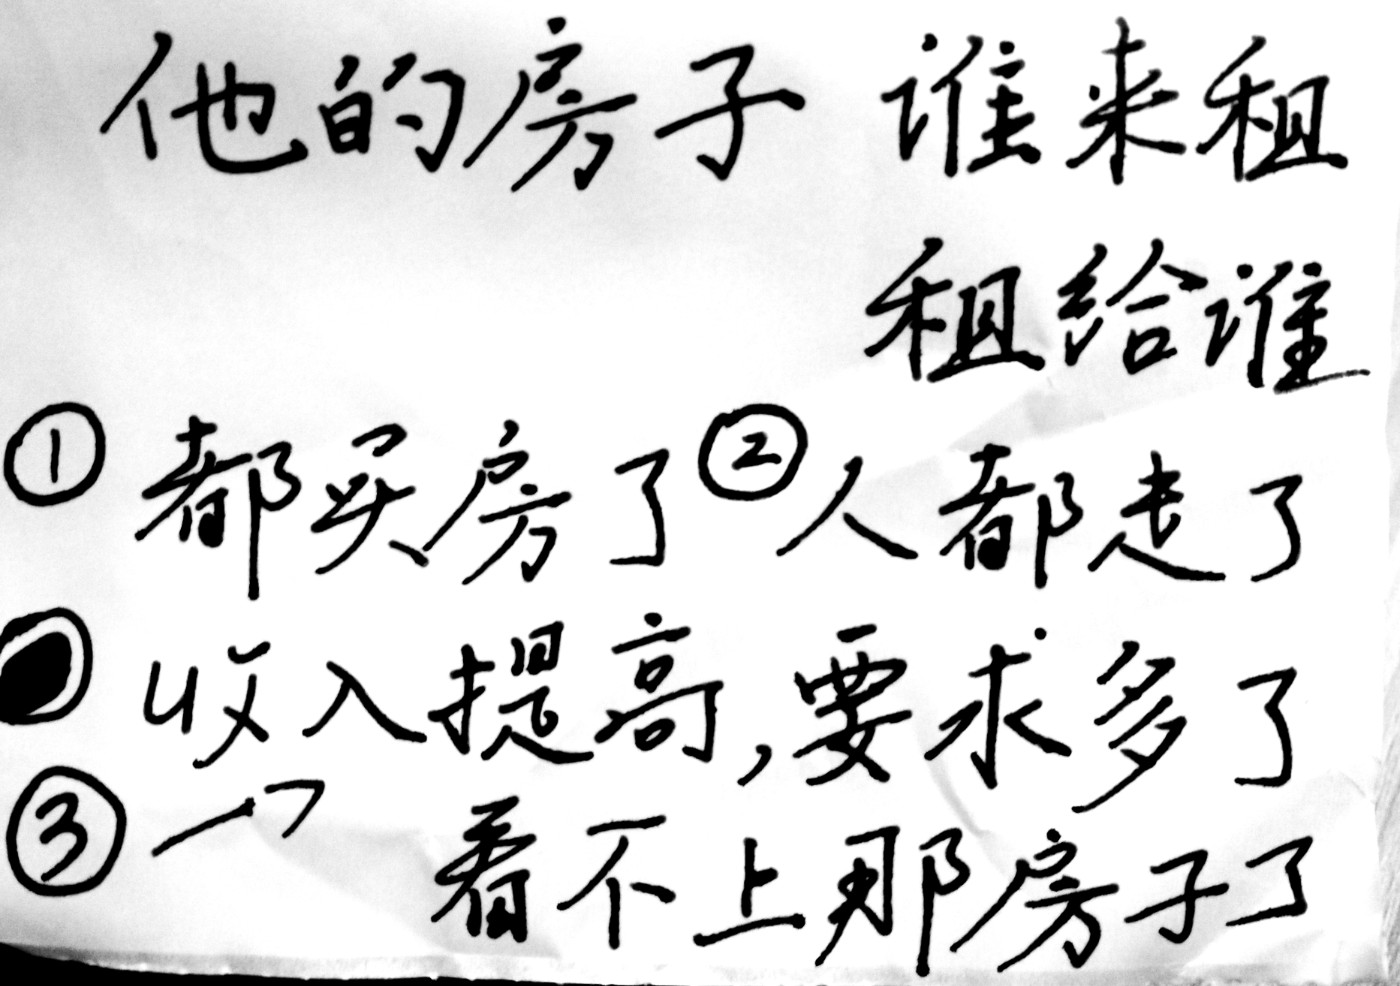 他的房子 谁来租
租给谁
①都买房了 ②人都走了
收入提高,要求多了
③ 看不上那房子了